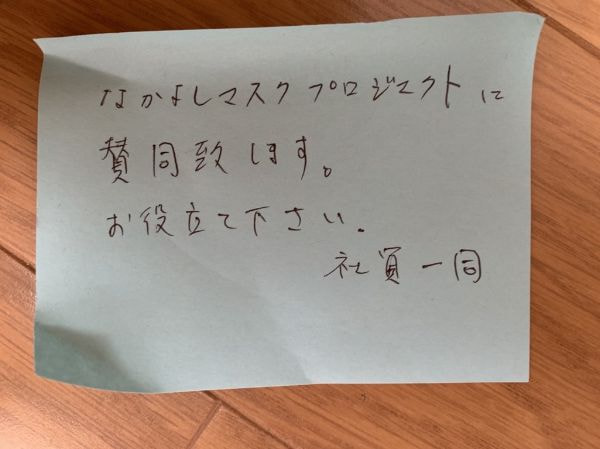 なかよしマスクプロジェクトに
賛同致します。
お役立て下さい。
社員一同